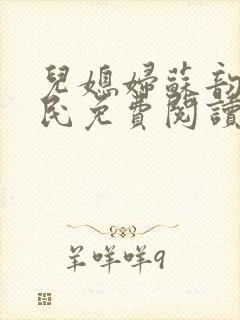 兒媳婦蘇韵
民免費閱讀
羊咩咩9